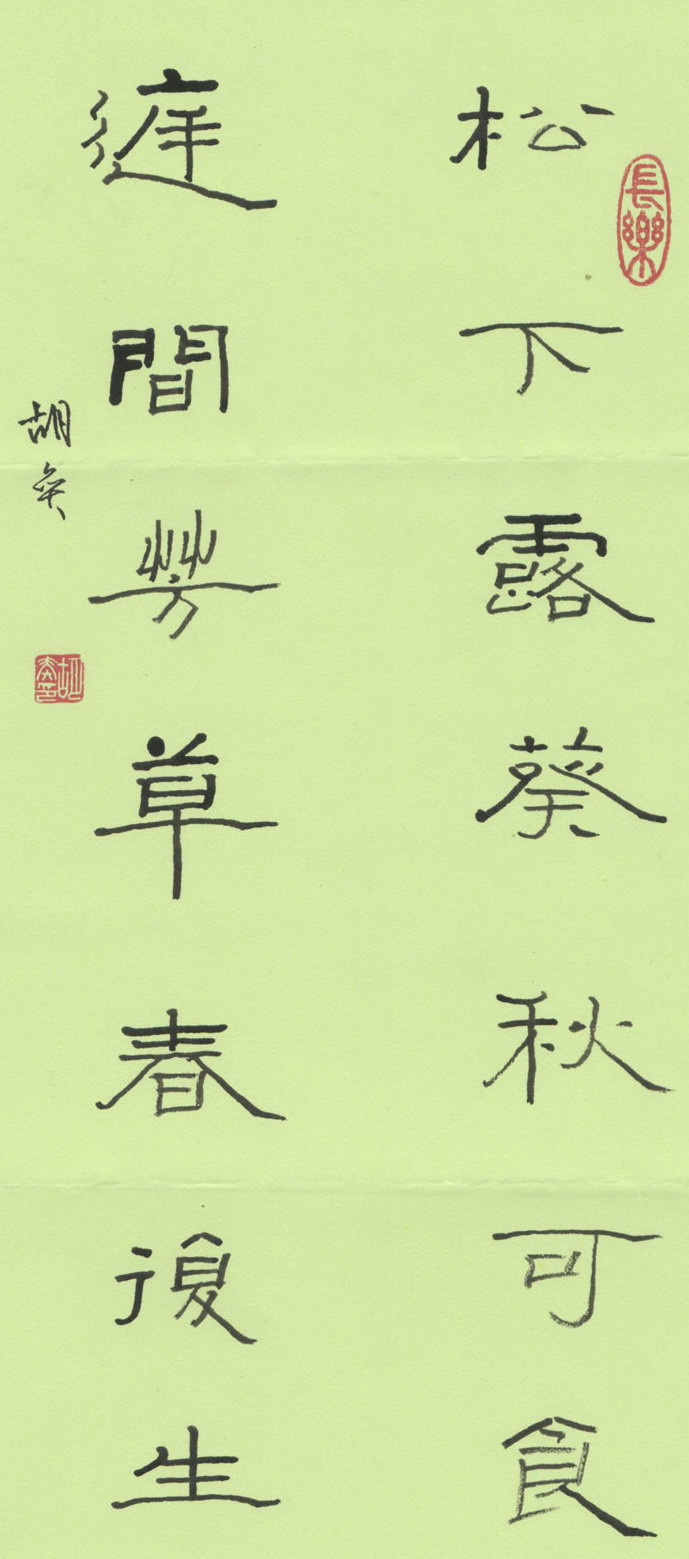 長樂
松下露葵秋可食
間芳草春復生
胡奕